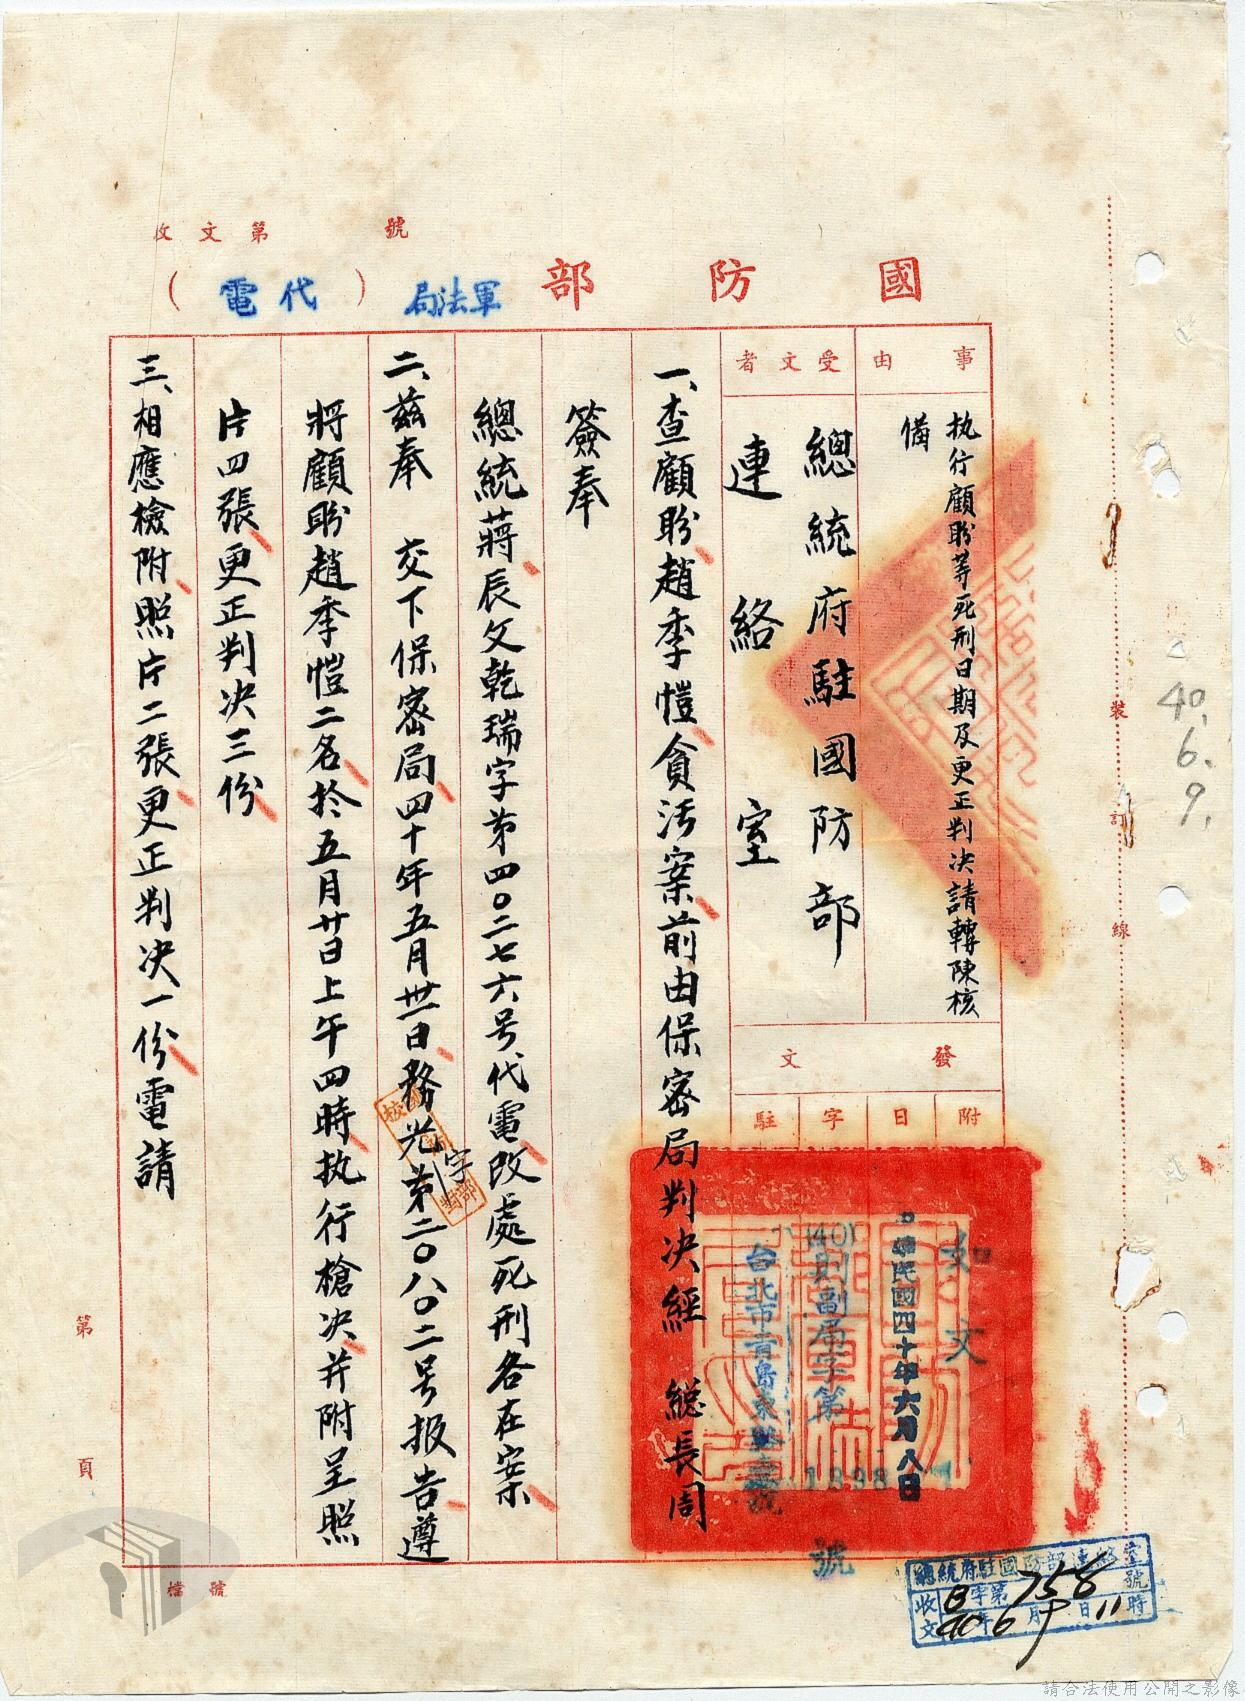 收文第 號
國防部 軍法局 （代電）
事由
执行顧盼等死刑日期及更正判决請轉陳核
備
受文者
總統府駐國防部
連絡室
發文
附
日
字
駐
如文
中華民國四十年六月八日
(40)
副局字第
1898
號
台北市青島東路
一、查顧盼趙季愷貪污案前由保密局判决經 總長周
簽奉
總統蔣辰文乾瑞字第四〇二七六号代電改處死刑各在案
二、茲奉 交下保密局四十年五月卅一日務光字第二〇八〇二号报告遵
將顧盼趙季愷二名於五月廿日上午四時执行槍决并附呈照
片四張更正判决三份
三、相應檢附照片二張更正判决一份電請
裝
訂
線
40.
6.
9.
第
頁
檔號
總統府駐國防部連絡室
收文 B字第758號
40年6月9日11時
請合法使用公開之影像